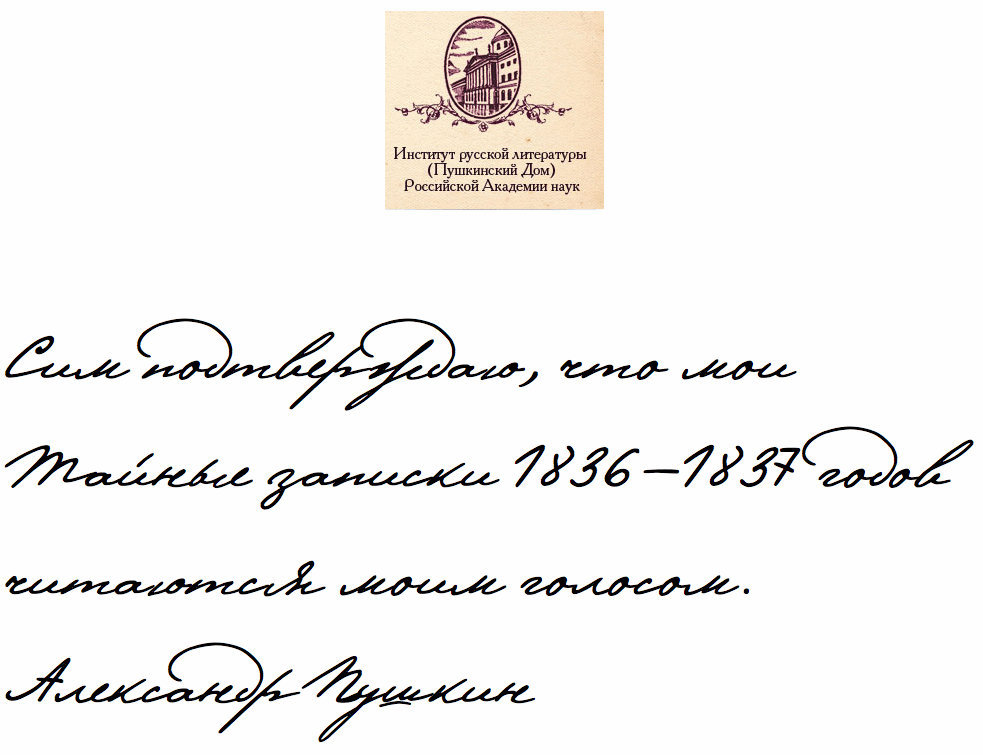 Институт русской литературы
(Пушкинский Дом)
Российской Академии наук
Сим подтверждаю, что мои
Тайные записки 1836–1837 годов
читаются моим голосом.
Александр Пушкин